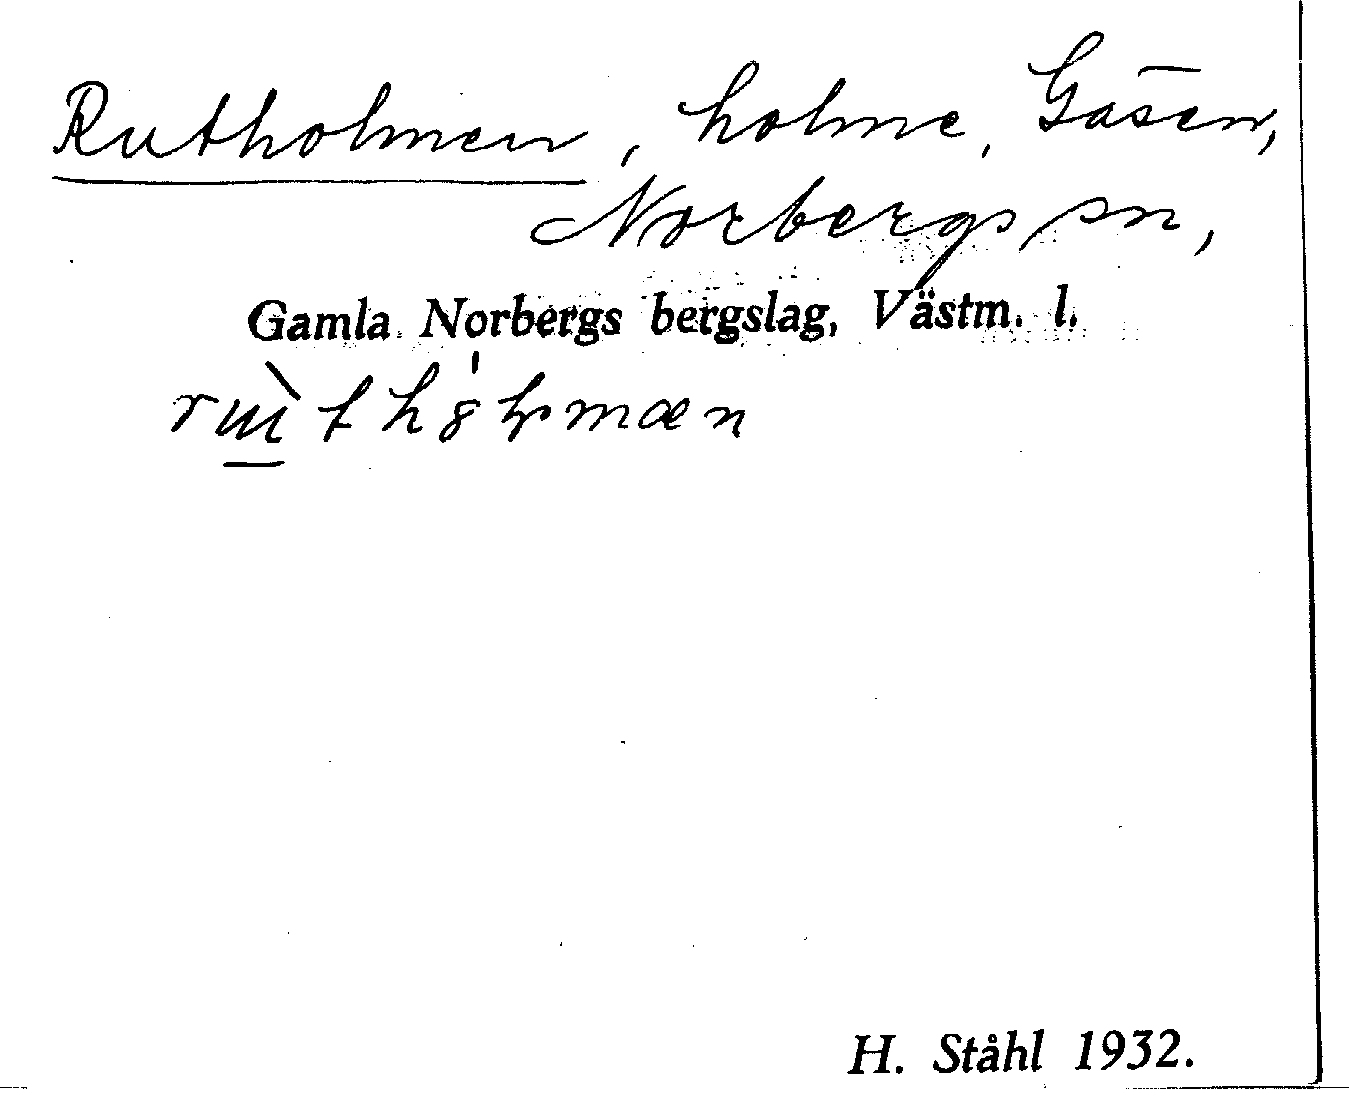 Rutholmen, holme, Gåsen,
Norbergs sn,
Gamla Norbergs bergslag, Västm. l.
H. Ståhl 1932.